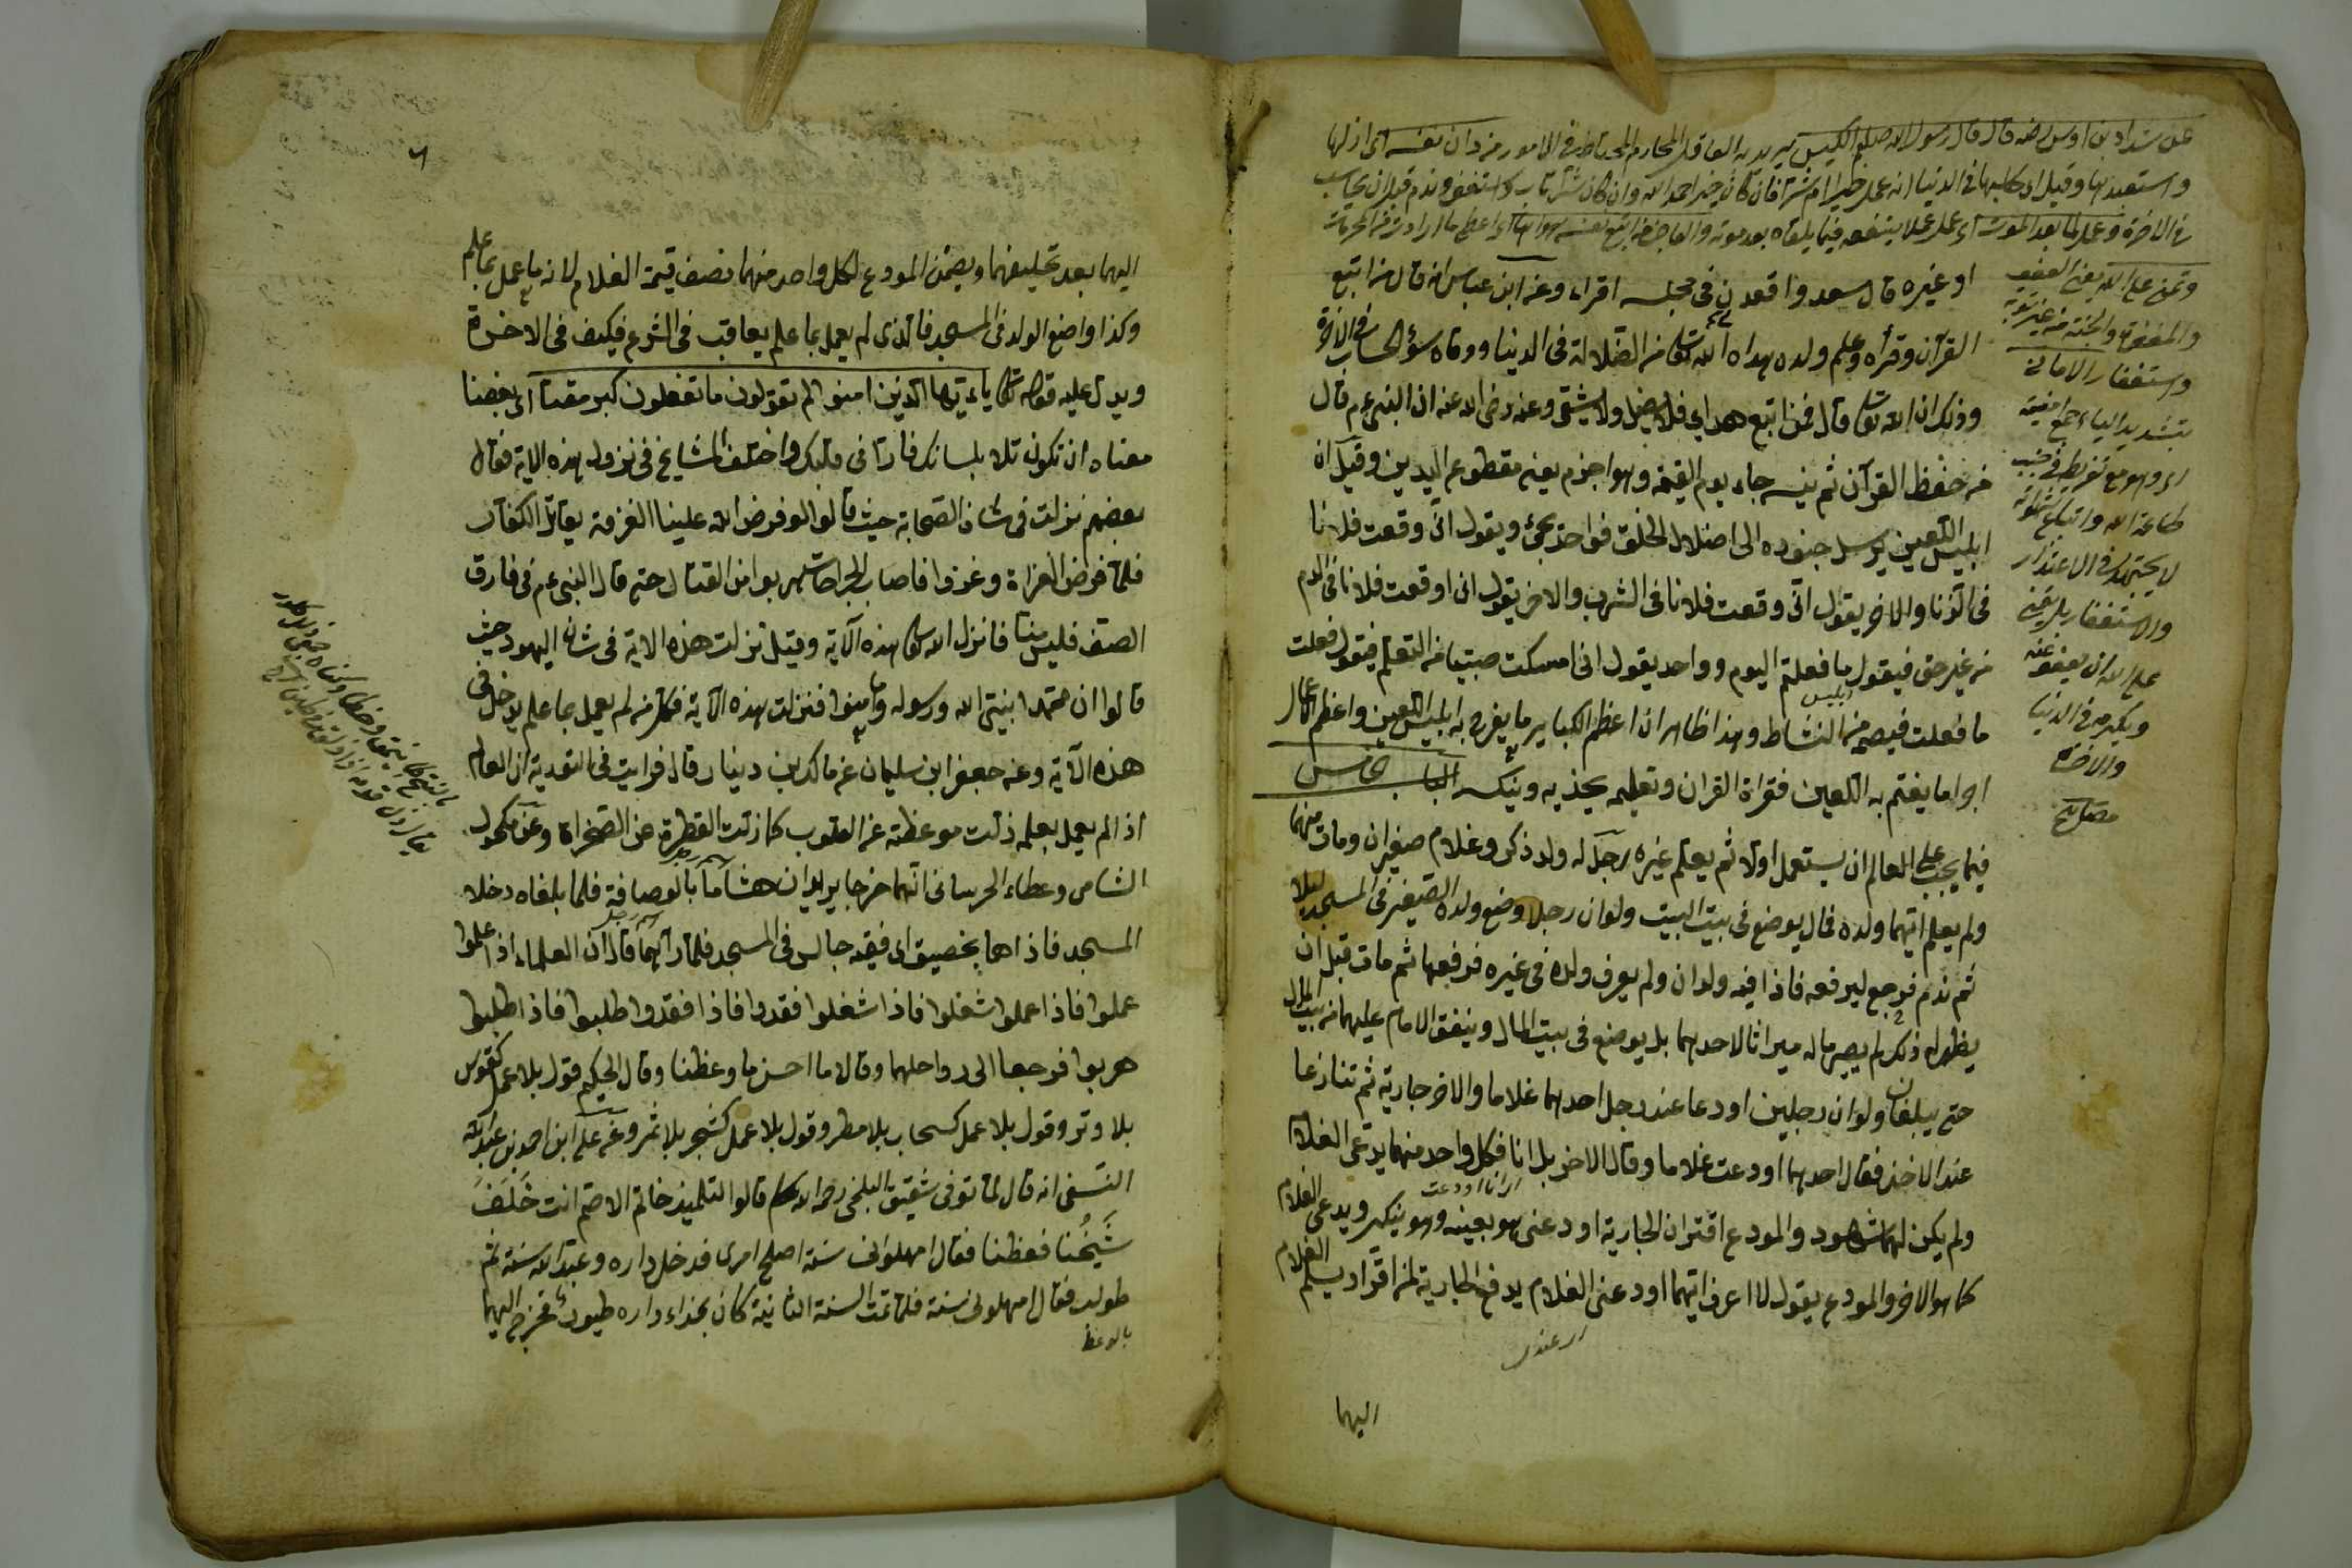 عن شداد بن اوس رضه قال قال رسول الله صلعم الكيس يريد به العاقل المحتاط فى الامور من دان نفسه اى اذلها
واستعبدها وقيل اى حاسبها فى الدنيا انه عمل خيرا ام شرا فان كان خيرا حمد الله وان كان شرا تاب واستغفر وندم قبل ان يحاسب
فى الاخرة وعمل لما بعد الموت اى عمل عملا ينفعه فيما يلقاه بعد موته والعاجز من اتبع نفسه هواها اى اعطى ما ارادت من المحرمات
وتمنى على الله يعنى العفو
والمغفرة والجنة من غير توبة
واستغفار الامانى
بتشديد الياء جمع امنية
اى وهو مع تفريطه فى جنب
طاعة الله واتباع شهواته
لا يجتهد فى الاعتذار
والاستغفار بل يتمنى
على الله ان يعفو عنه
ويكرمه فى الدنيا
والاخرة
مصابيح
او غيره قال سعد واقعدن فى مجلسه اقراء وعن ابن عباس انه قال من اتبع
القرآن وقرأه وعلم ولده هداه الله تعالى من الضلالة فى الدنيا ووقاه سؤ الحساب فى الاخرة
وذلك ان الله تعالى قال فمن اتبع هداى فلا يضل ولا يشقى وعنه رضى الله عنه ان النبى عم قال
من حفظ القرآن ثم نسيه جاء يوم القيمة وهو اجزم يعنى مقطوع اليدين وقيل ان
ابليس اللعين يرسل جنوده الى اضلال الخلق فواحد يجئ ويقول انى وقعت فلانا
فى الزنا والاخر يقول انى وقعت فلانا فى الشرب والاخر يقول انى اوقعت فلانا فى الدم
من غير حق فيقول ما فعلتم اليوم وواحد يقول انى امسكت صبيا من التعلم فيقول فعلت
ابليس
ما فعلت فيصيح من النشاط وهذا ظاهر ان اعظم الكباير ما يفرح به ابليس اللعين واعظم اعمال
اجرا ما يغتم به اللعين فقراة القران وتعليمه يحذيه وينكسه الباب الخامس
فيما يجب على العالم ان يستعمل اولا ثم يعلم غيره رجل له ولد ذكر وغلام صغيران ومات منهما
ولم يعلم ايهما ولده قال يوضع فى بيت البيت ولو ان رجلا وضع ولده الصغير فى المسجد ليلا
ثم ندم فرجع ليرفعه فاذا فيه ولدان ولم يعرف ولده فى غيره فرفعها ثم مات قبل ان
يظهر له ذلك لم يصير ماله ميراثا لاحدهما بل يوضع فى بيت المال وينفق الامام عليهما من بيت المال
حتى يبلغان ولو ان رجلين اودعا عند رجل احدهما غلاما والاخر جارية ثم تنازعا
عند الاخذ فقال احدهما اودعت غلاما وقال الاخر بل انا فكل واحد منهما يدعى الغلام
اى انا اودعت
ولم يكن لهما شهود والمودع اقتران الجارية اودعنى هو بعينه وهو ينكر ويدعى الغلام
كما هو الاخر والمودع يقول لا اعرف ايهما اودعنى الغلام يدفع الجارية لمن اقر اد يسلم الغلام
اى عندى
اليهما
٦
اليهما بعد تحليفهما ويضمن المودع لكل واحد منهما نصف قيمة الغلام لانه ما عمل بما علم
وكذا واضع الولد فى المسجد فالذى لم يعمل بما علم يعاقب فى الشرع فكيف فى الاخرة
ويدل عليه قوله تعالى ياءيها الذين امنوا لم تقولون ما تفعلون كبر مقتا اى بغضنا
معناه ان تكون تلا بلسانك فارتا فى قلبك واختلف المشايخ فى نزول هذه الاية فقال
بعضهم نزلت فى شان الصحابة حيث قالوا لو فرض الله علينا الغزوة يعاتل الكفار
فلما فرض الغزاة وغزوا فاصاب الجراحات هربوا من القتال حتى قال النبى عم من فارق
الصف فليس منا فانزل الله تعالى هذه الآية وقيل نزلت هذه الاية فى شان اليهود حيث
قالوا ان محمدا نبى الله ورسوله وما امنوا فنزلت هذه الآية فكل من لم يعمل بما علم يدخل فى
هذه الآية وعن جعفر ابن سليمان عن مالك بن دينار قال قرايت فى التورية ان العالم
اذا لم يعمل بعلمه زلت موعظته عن القلوب كما زلت القطرة عن الصخرات وعن مكحول
اسم رجل
الشامى وعطاء الخرسانى انهما خرجا يريدان هشاما بالرصافة فلما بلغاه دخلا
اسم رجل
المسجد فاذا هما بخصيق اى فقيه جالس فى المسجد فلما رآهما قال ان العلماء اذا علموا
عملوا فاذا عملوا شغلوا فاذا شغلوا فقدوا فاذا فقدوا طلبوا فاذا طلبوا
هربوا فرجعا الى رواحلهما وقالا ما احسن ما وعظنا وقال الحكيم قول بلا عمل كقوس
بلا وتر وقول بلا عمل كسحاب بلا مطر وقول بلا عمل كشجر بلا ثمر وعن على ابن احمد بن عبد الله
النسفى انه قال لما توفى شقيق البلخى رحمه الله قالوا لتلميذه حاتم الاصم انت خَلَفَ
شَيْخُنا فعظنا فقال امهلونى سنة اصلح امرى فدخل داره وعبد الله سنة ثم
طولب فقال امهلونى سنة فلما تمت السنة الثانية كان بحذاء داره طيور فخرج اليها
بالوعظ